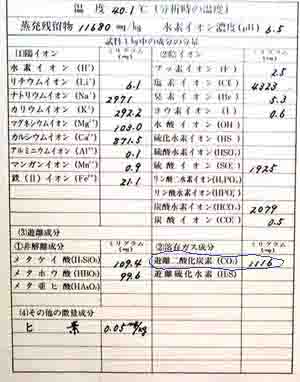 温度 40.1℃ (分析時の温度)
蒸発残留物 11680 mg/kg 水素イオン濃度(pH) 6.5
試料1kg中の成分の分量
(1)陽イオン ミリグラム(mg) (2)陰イオン ミリグラム(mg)
水素イオン(H⁺) フッ素イオン(F⁻) 2.5
リチウムイオン(Li⁺) 6.1 塩素イオン(Cl⁻) 4323
ナトリウムイオン(Na⁺) 2971 臭素イオン(Br⁻) 5.3
カリウムイオン(K⁺) 292.2 ヨウ素イオン(I⁻) 0.6
マグネシウムイオン(Mg²⁺) 103.0 水酸イオン(OH⁻)
カルシウムイオン(Ca²⁺) 871.5 硫化水素イオン(HS⁻)
アルミニウムイオン(Al³⁺) 0.1 硫酸水素イオン(HSO₄⁻)
マンガンイオン(Mn²⁺) 0.9 硫酸イオン(SO₄²⁻) 1925
鉄(Ⅱ)イオン(Fe²⁺) 21.1 リン酸二水素イオン(H₂PO₄⁻)
リン酸水素イオン(HPO₄²⁻)
炭酸水素イオン(HCO₃⁻) 2079
炭酸イオン(CO₃²⁻) 0.5
(3)遊離成分
①非解離成分 ミリグラム(mg) ②溶存ガス成分 ミリグラム(mg)
メタケイ酸(H₂SiO₃) 109.4 遊離二酸化炭素(CO₂) 1116
メタホウ酸(HBO₂) 99.6 遊離硫化水素(H₂S)
メタ亜ヒ酸(HAsO₂)
(4)その他の微量成分
ヒ素 0.05mg/kg